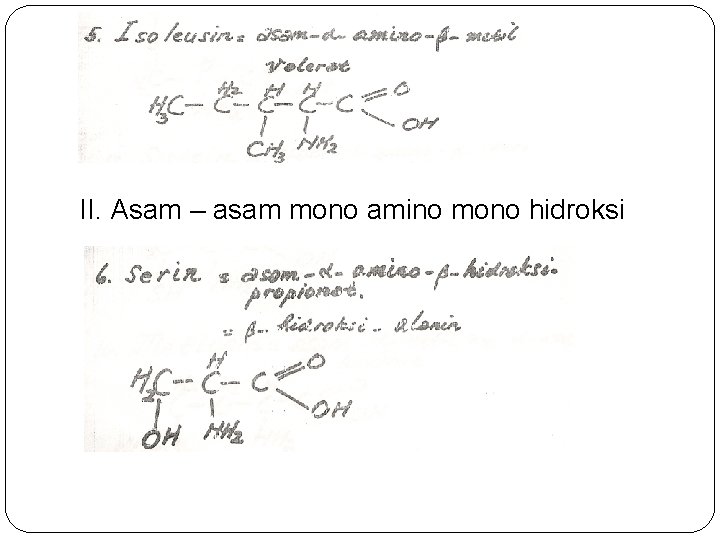 5. Isoleusin = asam-α- amino-β- metil
Valerat
H2 H H O
H3C – C – C – C – C
OH
CH3 NH2
II. Asam – asam mono amino mono hidroksi
6. Serin = asam-α- amino-β-hidroksi-
propionat.
= β- hidroksi - alanin
H O
H2C -- C – C
OH
OH NH2